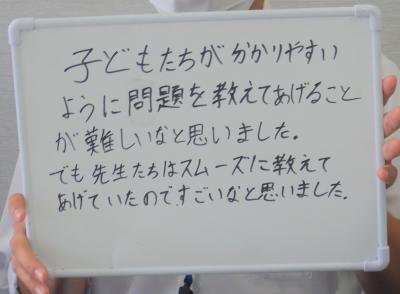 子どもたちが分かりやすい
ように問題を教えてあげること
が難しいなと思いました。
でも先生たちはスムーズに教えて
あげていたのですごいなと思いました。